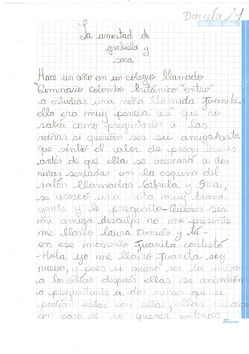 Daniela
La amistad de
grabiela y
sara
Hace un año en un colegio llamado
"Gimnasio Colombo Británico" entró
a estudiar una niña llamada Juanita
ella era muy penosa así que no
sabía como preguntarles a las
niñas si querían ser su amiga hasta
que sintió el valor de preguntarles
antes de que ella se acercara a dos
niñas sentadas en la esquina del
salón llamadas Gabriela y Sara,
se acercó una niña muy buena
gente y le preguntó - Quieres ser
mi amiga disculpa no me presente
me llamo laura Daniela y tú -
en ese momento Juanita contestó
- Hola yo me llamo Juanita soy
nueva, y pues si quiero ser tu amiga
a los días después ellas se animaron
a preguntarle a dos niñas que si
podían estar con ellas, ellas
con cara de no quieres entonces